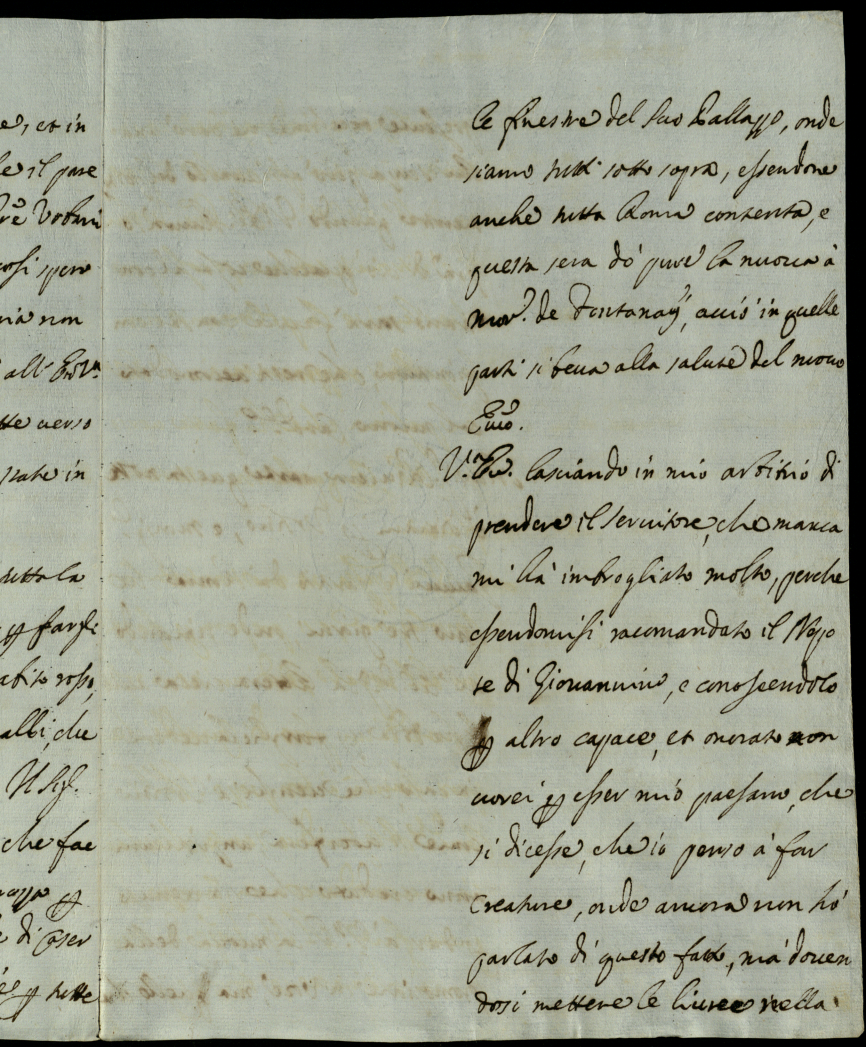 e, et in
le il pare
re Urbani
cosi spero
ria non
all' Em.ᵃ
tte verso
state in
tutta la
ꝑ farsi
abito rosso,
alli, che
Il Sig.
che fac
ꝑ
e di Caser
ꝑ tutte
le finestre del suo Pallazzo, onde
siamo tutti sotto sopra, essendone
anche tutta Roma contenta, e
questa sera dó pure la nuova á
mon.ʳ de Fontanaÿ, acció in quelle
parti si beva alla salute del nuovo
Emo.
V.ᵃ Em. lasciando in mio arbitrio di
prendere il servitore, che manca
mi há imbrogliato molto, perche
essendomisi racomandato il Nipo
te di Giovannino, e conoscendolo
ꝑ altro capace, et onorato non
vorei ꝑ esser mió paesano, che
si dicesse, che io penso á far
Creature, onde ancora non hó
parlato di questo fatto, má doven
dosi mettere le livree nella